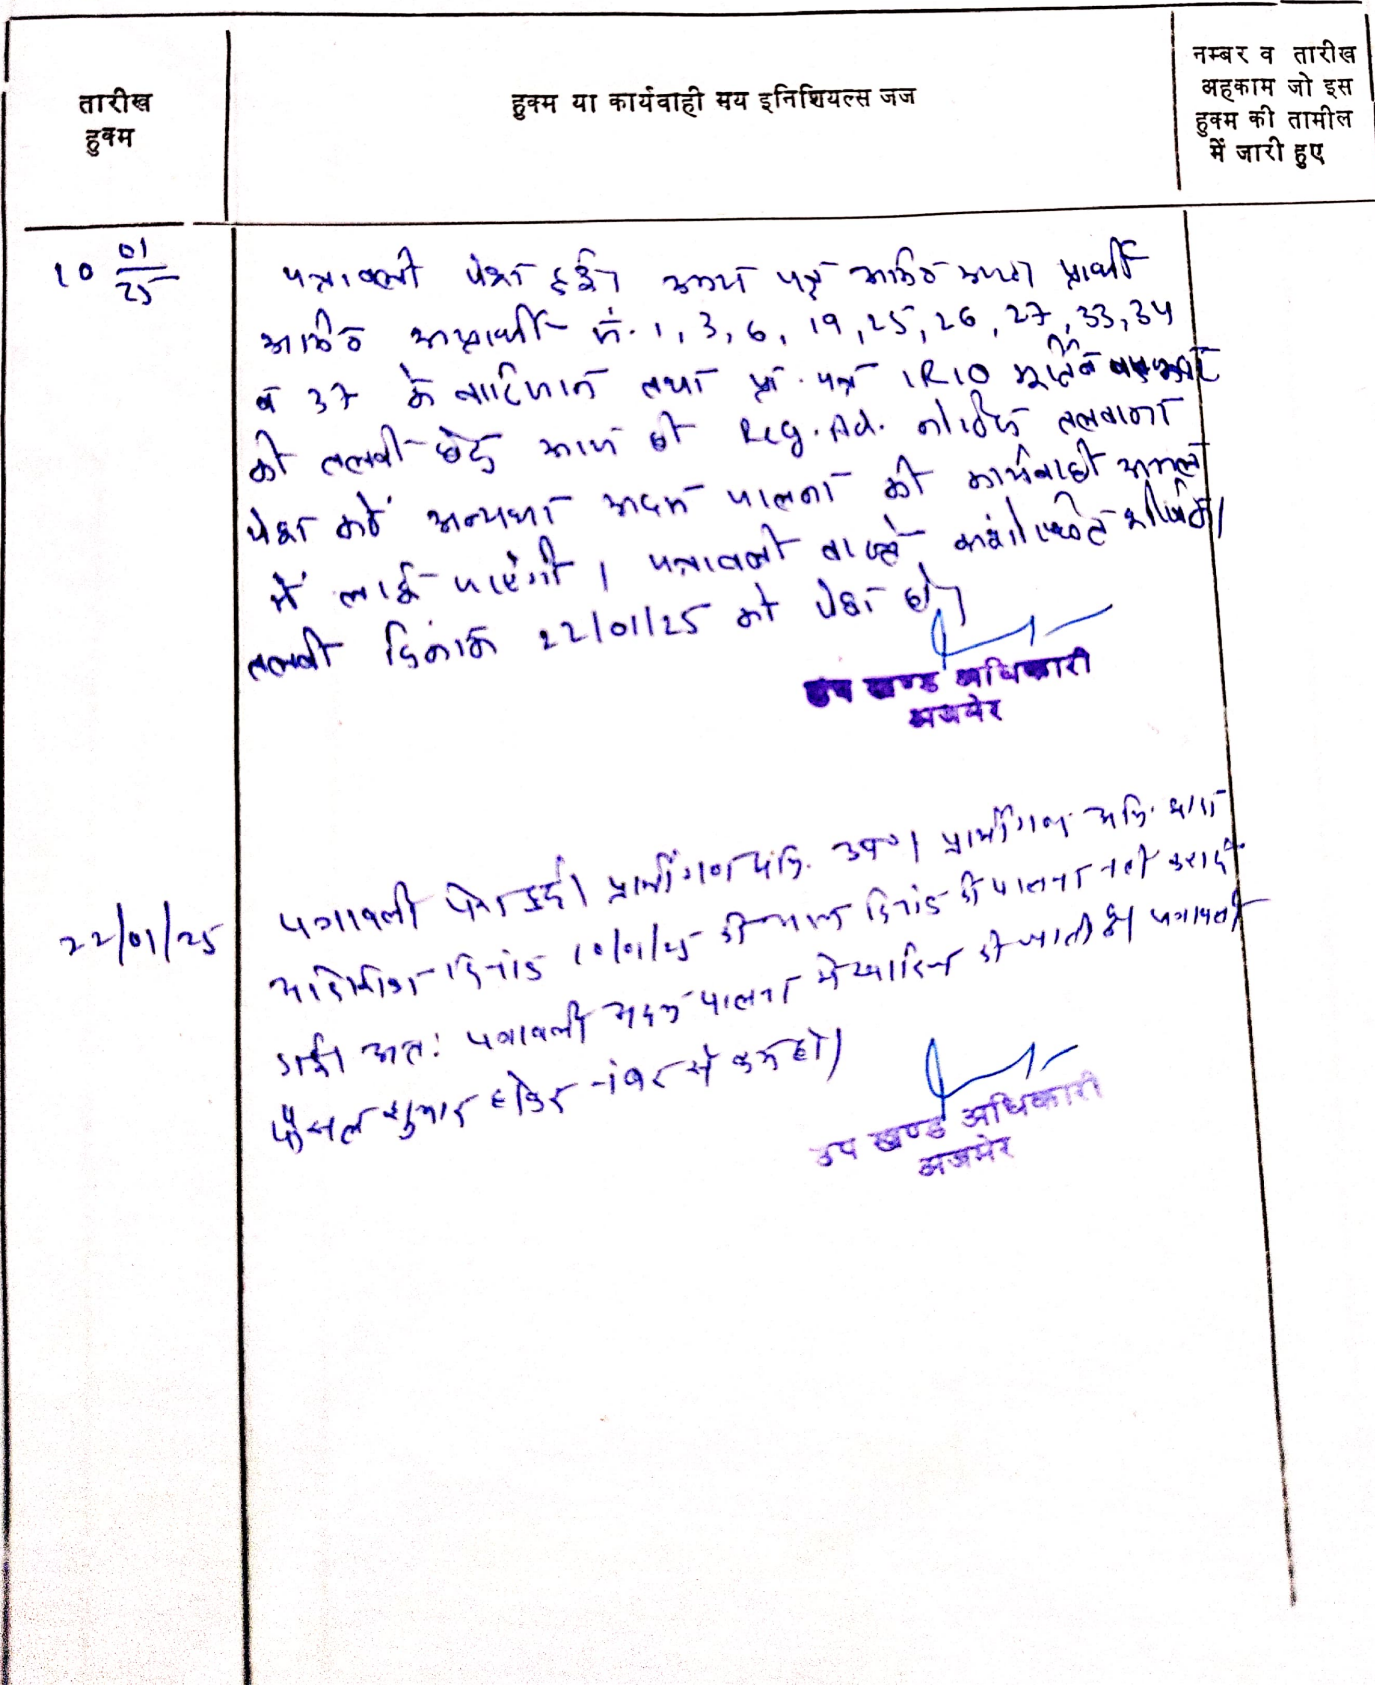 तारीख
हुक्म
हुक्म या कार्यवाही मय इनिशियल्स जज
नम्बर व तारीख
अहकाम जो इस
हुक्म की तामील
में जारी हुए
10 01/25
पत्रावली पेश हुई। उभय पक्ष प्रार्थी
अप्रार्थी नं. 1, 3, 6, 19, 25, 26, 27, 33, 34
व 37 के वारिसान तथा प्रा. पत्र 1R10
की तलबी हेतु आज ही Reg. Ad. नोटिस तलवाना
पेश करें अन्यथा अदम पालना की कार्यवाही अमल
में लाई जाएगी। पत्रावली वास्ते
तलबी दिनांक 22/01/25 को पेश हो।
उप खण्ड अधिकारी
अजमेर
22/01/25
पत्रावली पेश हुई। प्रार्थीगण अभि. उप०। प्रार्थीगण अभि. द्वारा
दिनांक 10/01/25 की आज दिनांक की पालना नहीं कराई
गई। अतः पत्रावली अदम पालना में खारिज की जाती है। पत्रावली
फैसल शुमार होकर नंबर से कम हो।
उप खण्ड अधिकारी
अजमेर